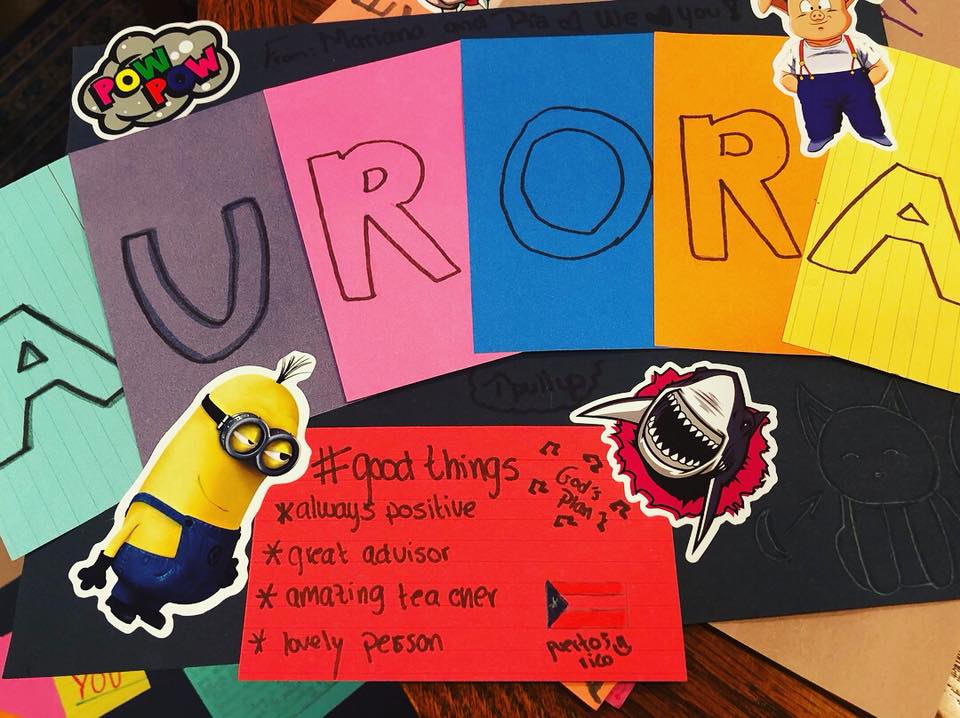 From Mariana and Pia We you!
POW
POW
AURORA
#good things
*always positive
*great advisor
*amazing teacher
*lovely person
God's
Plan
puerto
rico
YOU